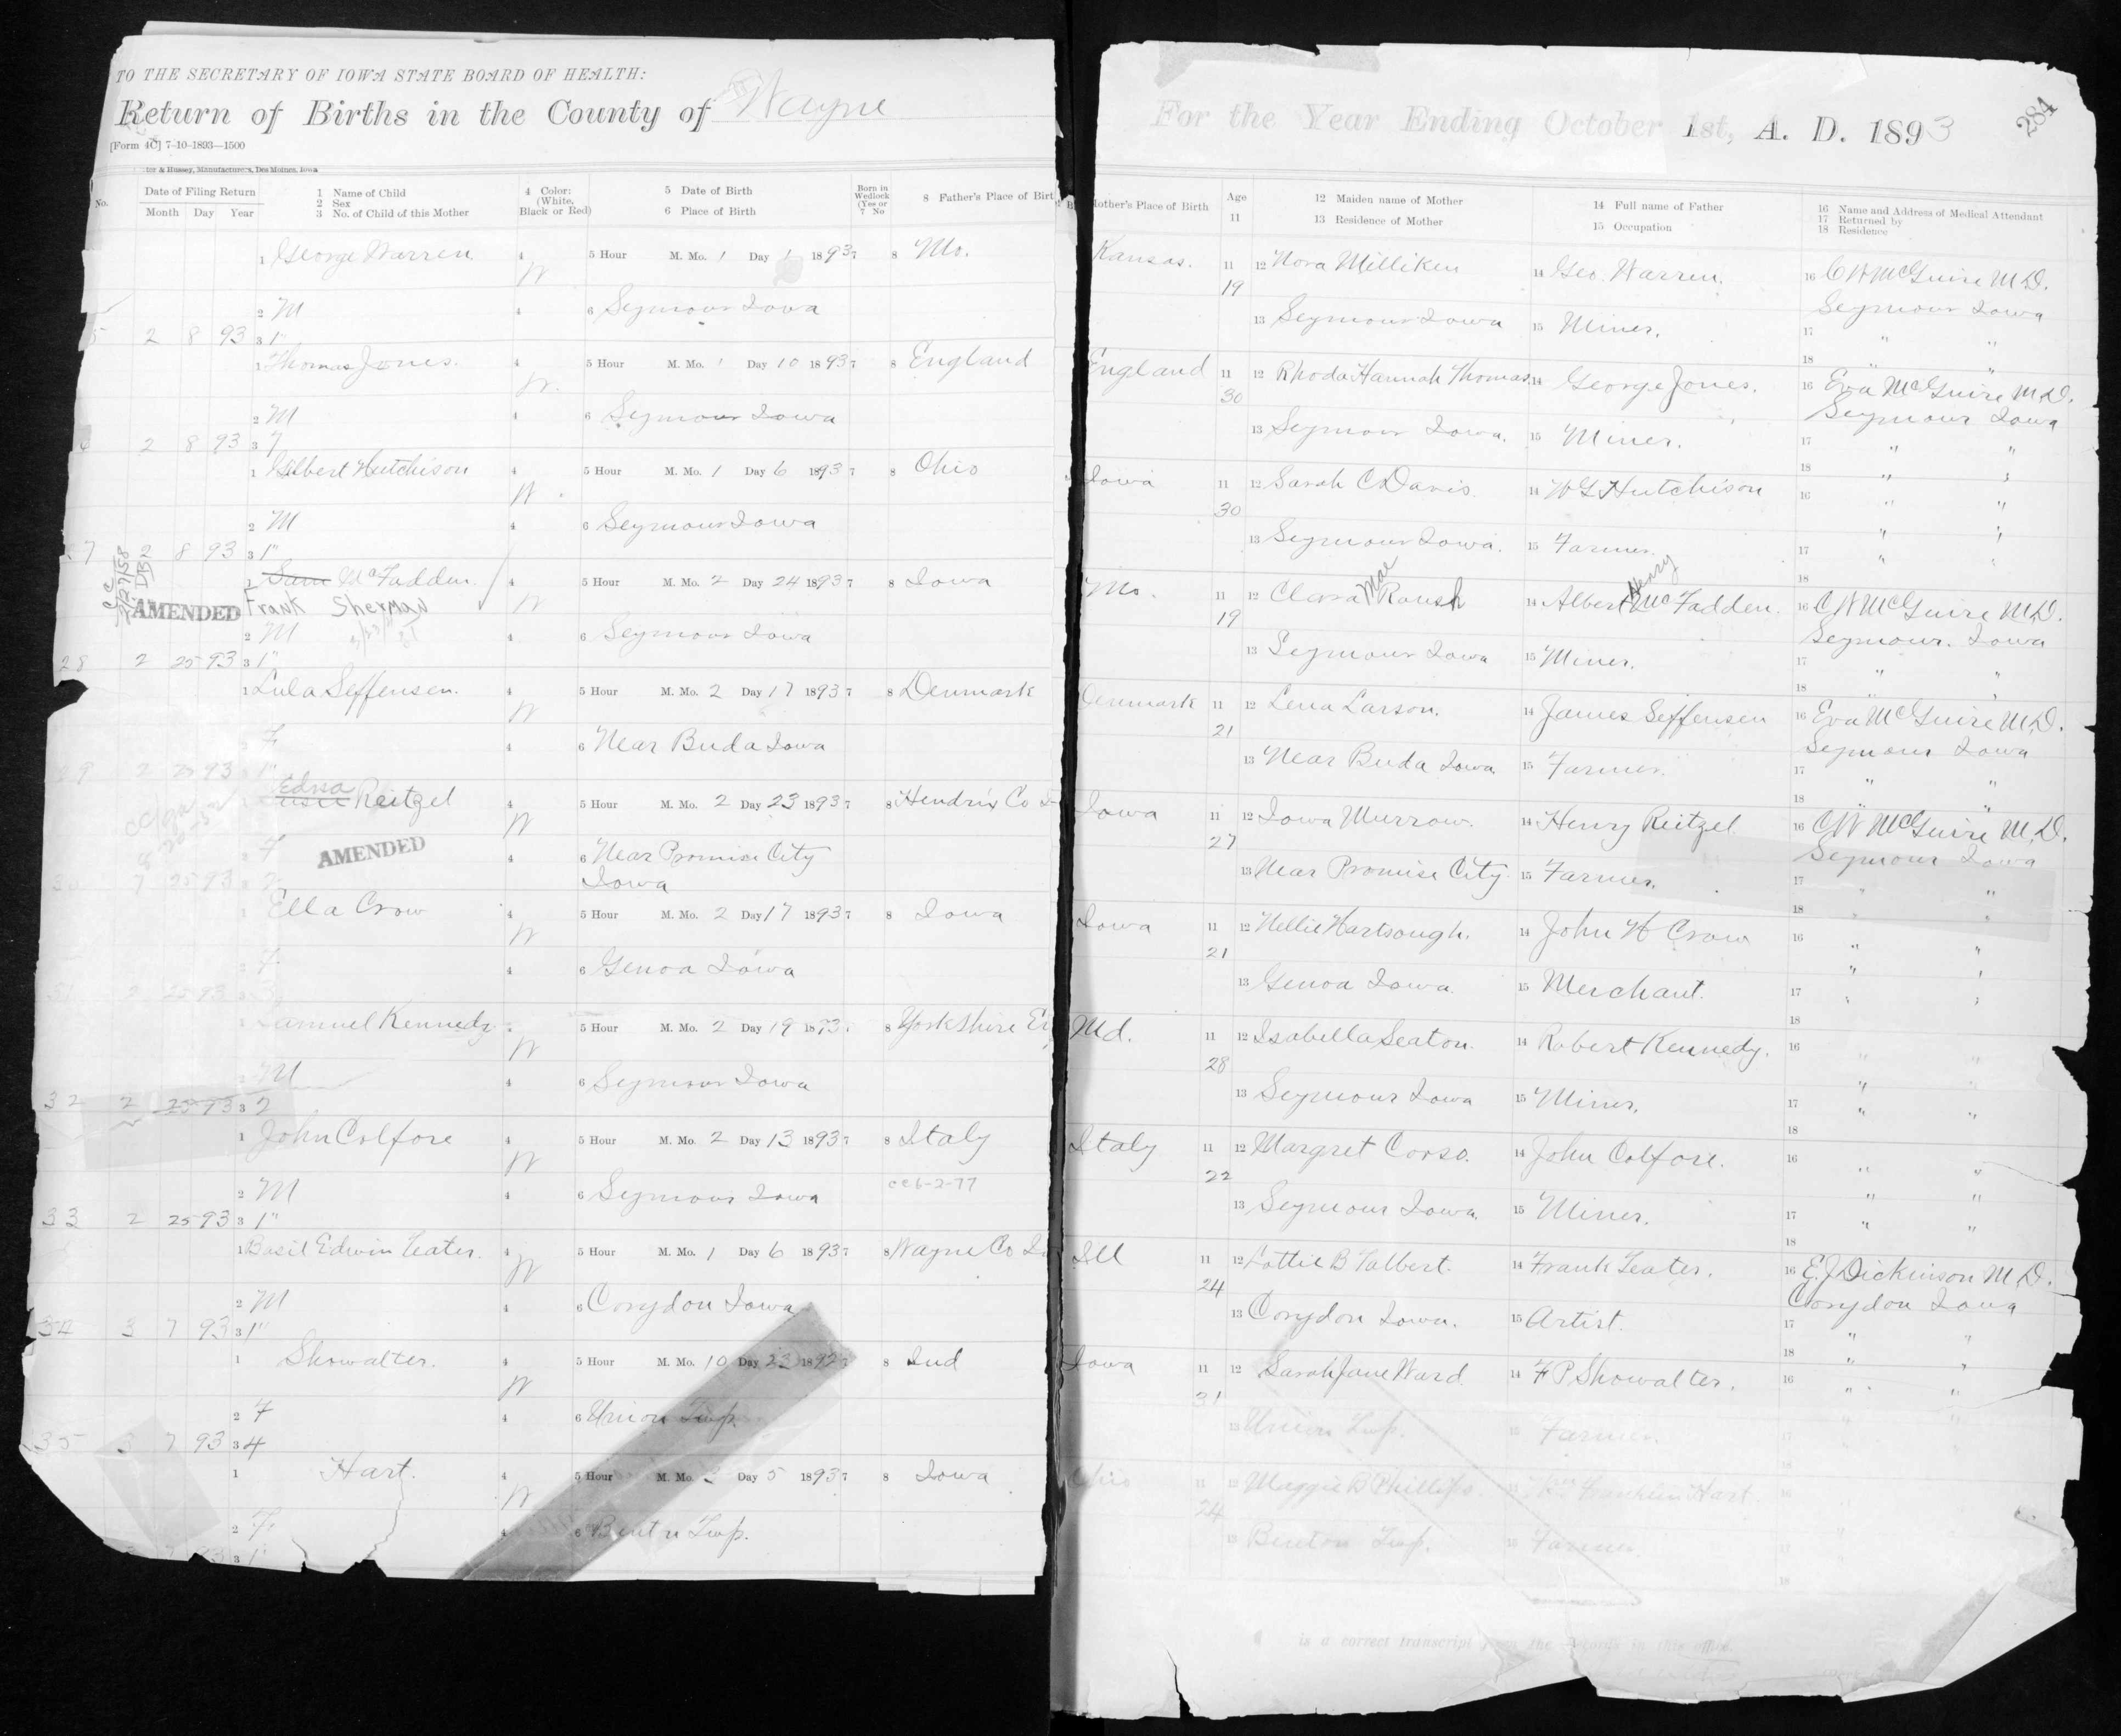 TO THE SECRETARY OF IOWA STATE BOARD OF HEALTH:
Return of Births in the County of Wayne
[Form 4C] 7-10-1893—1500
& Hussey, Manufacturers, Des Moines, Iowa
No. Date of Filing Return 1 Name of Child 4 Color: 5 Date of Birth Born in 8 Father's Place of Birt
Month Day Year 2 Sex (White, 6 Place of Birth Wedlock
3 No. of Child of this Mother Black or Red) (Yes or
7 No
1 George Warren 4 W 5 Hour M. Mo. 1 Day 1 1893 7 8 Mo.
2 M 4 6 Seymour Iowa
5 2 8 93 3 1"
1 Thomas Jones. 4 W. 5 Hour M. Mo. 1 Day 10 1893 7 8 England
2 M 4 6 Seymour Iowa
6 2 8 93 3 7
1 Hutchison 4 W. 5 Hour M. Mo. 1 Day 6 1893 7 8 Ohio
2 M 4 6 Seymour Iowa
27 2 8 93 3 1"
1 Sam McFadden. 4 W 5 Hour M. Mo. 2 Day 24 1893 7 8 Iowa
AMENDED Frank Sherman
2 M 4 6 Seymour Iowa
28 2 25 93 3 1"
1 Lula Seffensen. 4 W 5 Hour M. Mo. 2 Day 17 1893 7 8 Denmark
2 F 4 6 Near Buda Iowa
29 2 25 93 1"
Edna
Reitzel 4 W 5 Hour M. Mo. 2 Day 23 1893 7 8 Hendrix Co
2 F AMENDED 4 6 Near Promise City
Iowa
30 25 93
1 Ella Crow 4 W 5 Hour M. Mo. 2 Day 17 1893 7 8 Iowa
2 F 4 6 Genoa Iowa
31 2 25 93 3
Kennedy W 5 Hour M. Mo. 2 Day 19 1893 8 Yorkshire
2 M 4 6 Seymour Iowa
32 2 25 93 3 2
1 John Colfore 4 W 5 Hour M. Mo. 2 Day 13 1893 7 8 Italy
2 M 4 6 Seymour Iowa cc 6-2-77
33 2 25 93 3 1"
1 Basil Edwin Teater. 4 W 5 Hour M. Mo. 1 Day 6 1893 7 8 Wayne Co
2 M 4 6 Corydon Iowa
34 3 7 93 3 1"
1 Showalter. 4 W 5 Hour M. Mo. 10 Day 23 1892 7 8 Ind
2 F 4 6 Union Twp.
35 3 7 93 3 4
1 Hart. 4 W 5 Hour M. Mo. Day 5 1893 7 8 Iowa
2 F. 4 6 Twp.
3 1"
For the Year Ending October 1st, A. D. 1893
284
Mother's Place of Birth Age 12 Maiden name of Mother 14 Full name of Father 16 Name and Address of Medical Attendant
11 13 Residence of Mother 15 Occupation 17 Returned by
18 Residence
Kansas. 11 19 12 Nora Milliken 14 Geo. Warren. 16 C W McGuire M.D.
Seymour Iowa
13 Seymour Iowa 15 Miner. 17 " "
18 " "
England 11 30 12 Rhoda Hannah Thomas. 14 George Jones. 16 Eva McGuire M.D.
Seymour Iowa
13 Seymour Iowa. 15 Miner. 17 " "
18 " "
Iowa 11 30 12 Sarah C Davis. 14 W G Hutchison 16 " "
" "
13 Seymour Iowa. 15 Farmer. 17 " "
18
Mo. 11 19 12 Clara Mae Roush 14 Albert Henry McFadden. 16 C W McGuire M.D.
Seymour. Iowa
13 Seymour Iowa 15 Miner. 17 " "
18 " "
Denmark 11 21 12 Lena Larson. 14 James Seffensen 16 Eva McGuire M.D.
Seymour Iowa
13 Near Buda Iowa. 15 Farmer. 17 " "
18 " "
Iowa 11 27 12 Iowa Murrow. 14 Henry Reitzel 16 C W McGuire M.D.
Seymour Iowa
13 Near Promise City. 15 Farmer. 17 " "
18 " "
Iowa 11 21 12 Nellie Hartsough. 14 John H Crow 16 " "
" "
13 Genoa Iowa. 15 Merchant. 17 " "
18
Md. 11 28 12 Isabella Seaton. 14 Robert Kennedy. 16 " "
" "
13 Seymour Iowa 15 Miner. 17 " "
18
Italy 11 22 12 Margret Corso. 14 John Colfore. 16 " "
" "
13 Seymour Iowa. 15 Miner. 17 " "
18
Ill 11 24 12 Lottie B Talbert. 14 Frank Teater. 16 E. J Dickinson M.D.
Corydon Iowa
13 Corydon Iowa. 15 Artist. 17 " "
18 " "
Iowa 11 31 12 Sarah Jane Ward. 14 F P Showalter. 16 " "
13 Union Twp. 15 Farmer. 17 " "
18
Ohio 11 24 12 Maggie B Phillips. 14 Franklin Hart 16
13 Benton Twp. 15 Farmer. 17
18
is a correct transcript from the records in this office.